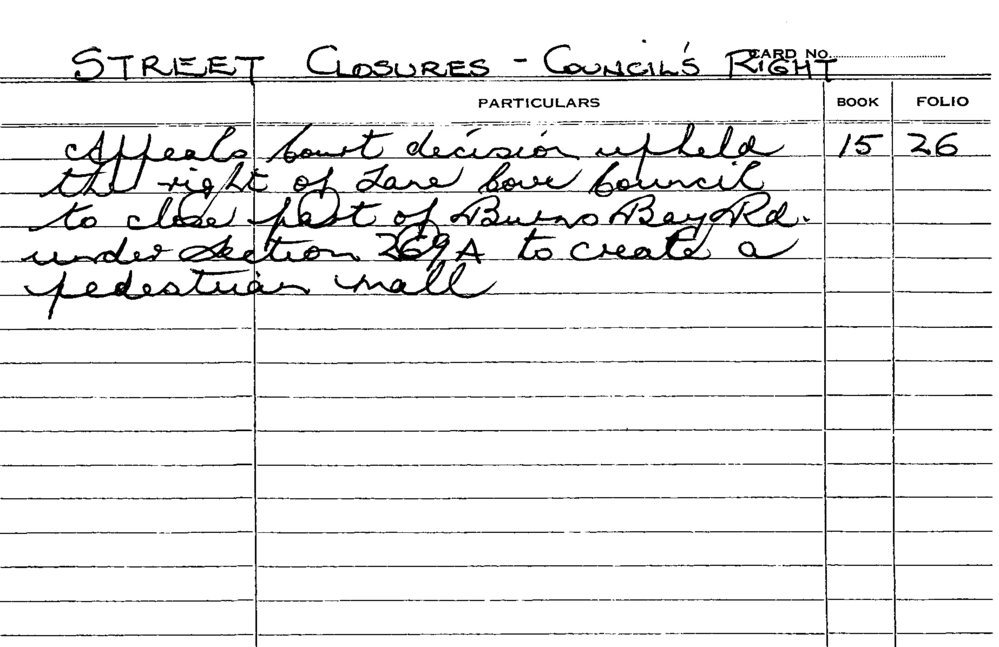 STREET CLOSURES - COUNCIL'S RIGHT CARD No.
PARTICULARS BOOK FOLIO
Appeals Court decision upheld 15 26
the right of Lane Cove Council
to close part of Burns Bay Rd.
under Section 269A to create a
pedestrian mall